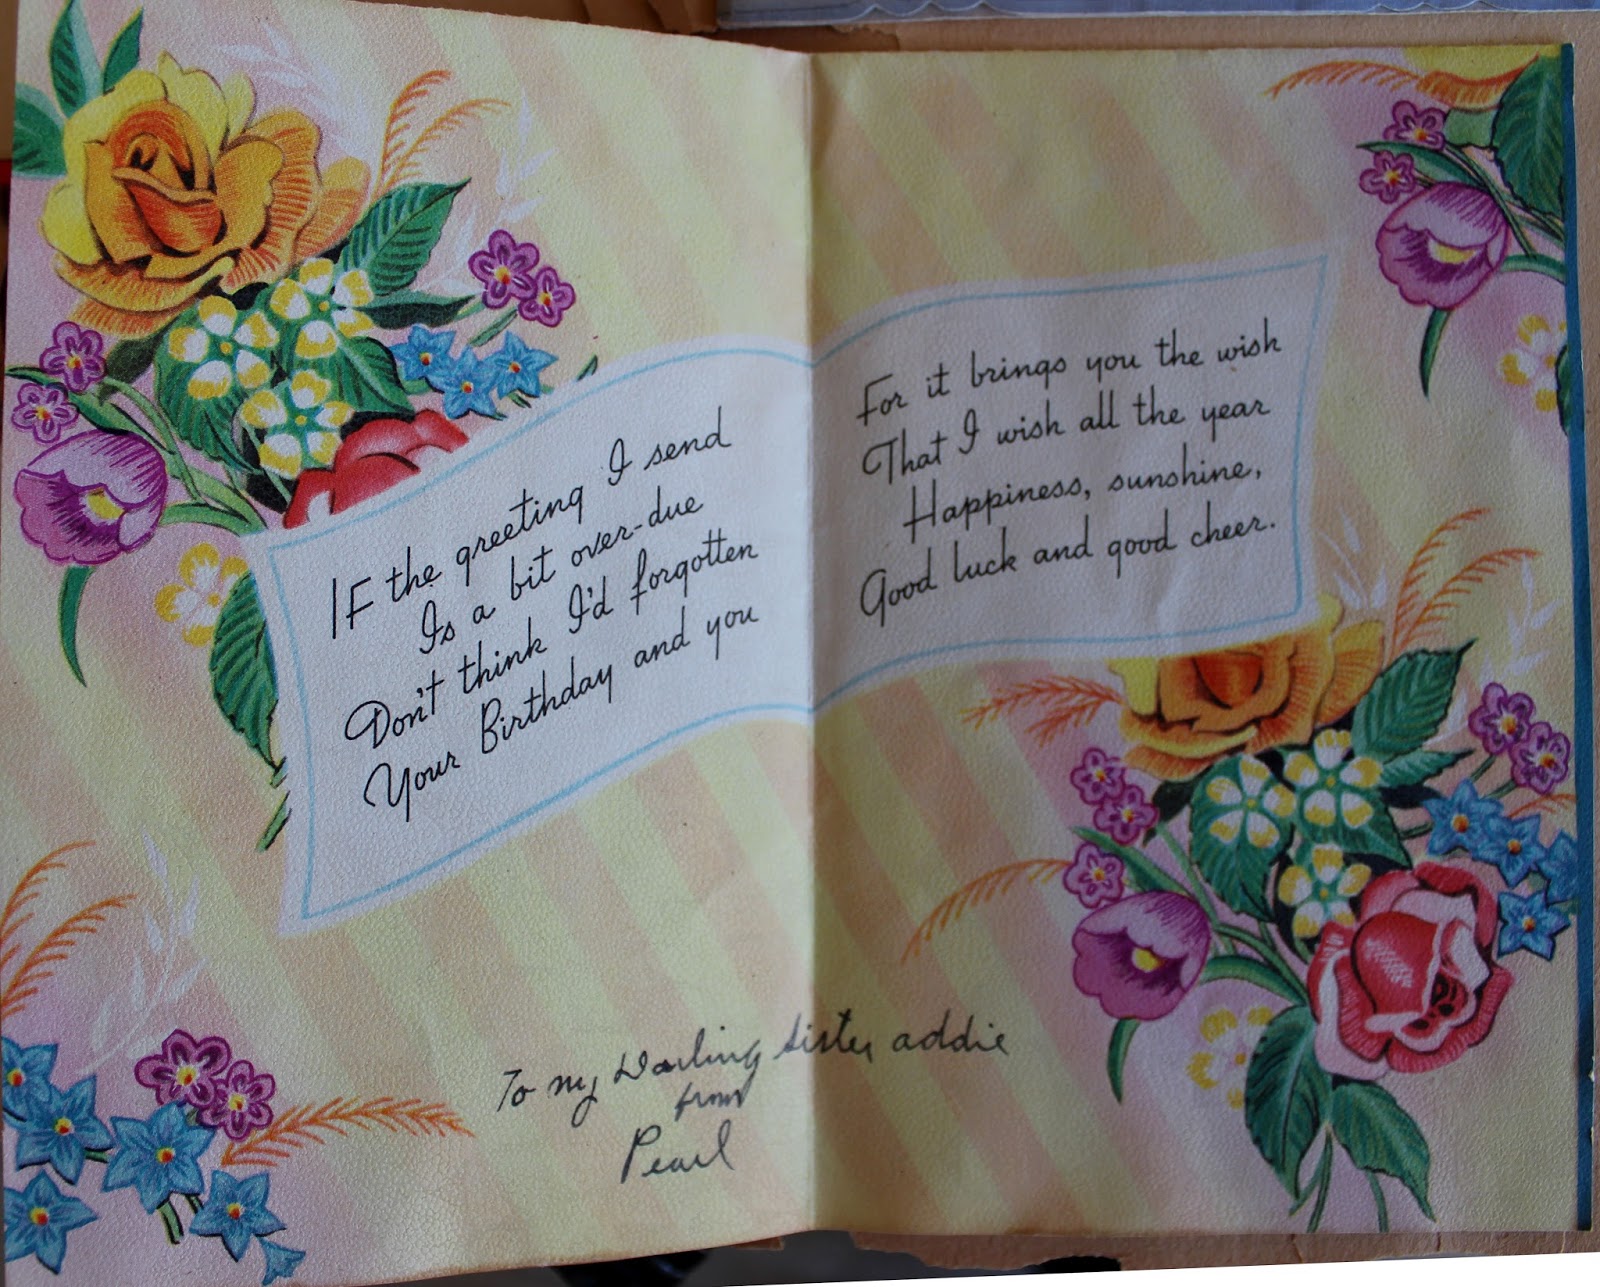 IF the greeting I send
Is a bit over-due
Don't think I'd forgotten
Your Birthday and you
For it brings you the wish
That I wish all the year
Happiness, sunshine,
Good luck and good cheer.
To my Darling sister addie
from
Pearl